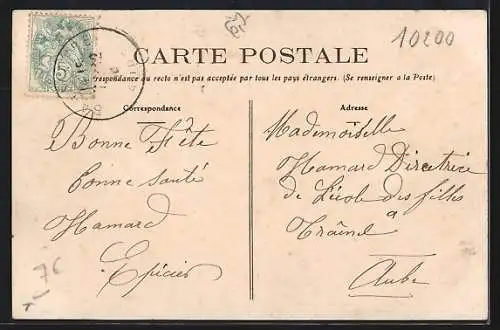 10200
CARTE POSTALE
Correspondance au recto n'est pas acceptée par tous les pays étrangers. (Se renseigner a la Poste)
Correspondance
Adresse
Bonne Fête
Bonne santé
Hamard
Epicier
Mademoiselle
Hamard Directrice
de l'école des filles
a
Traînel
Aube